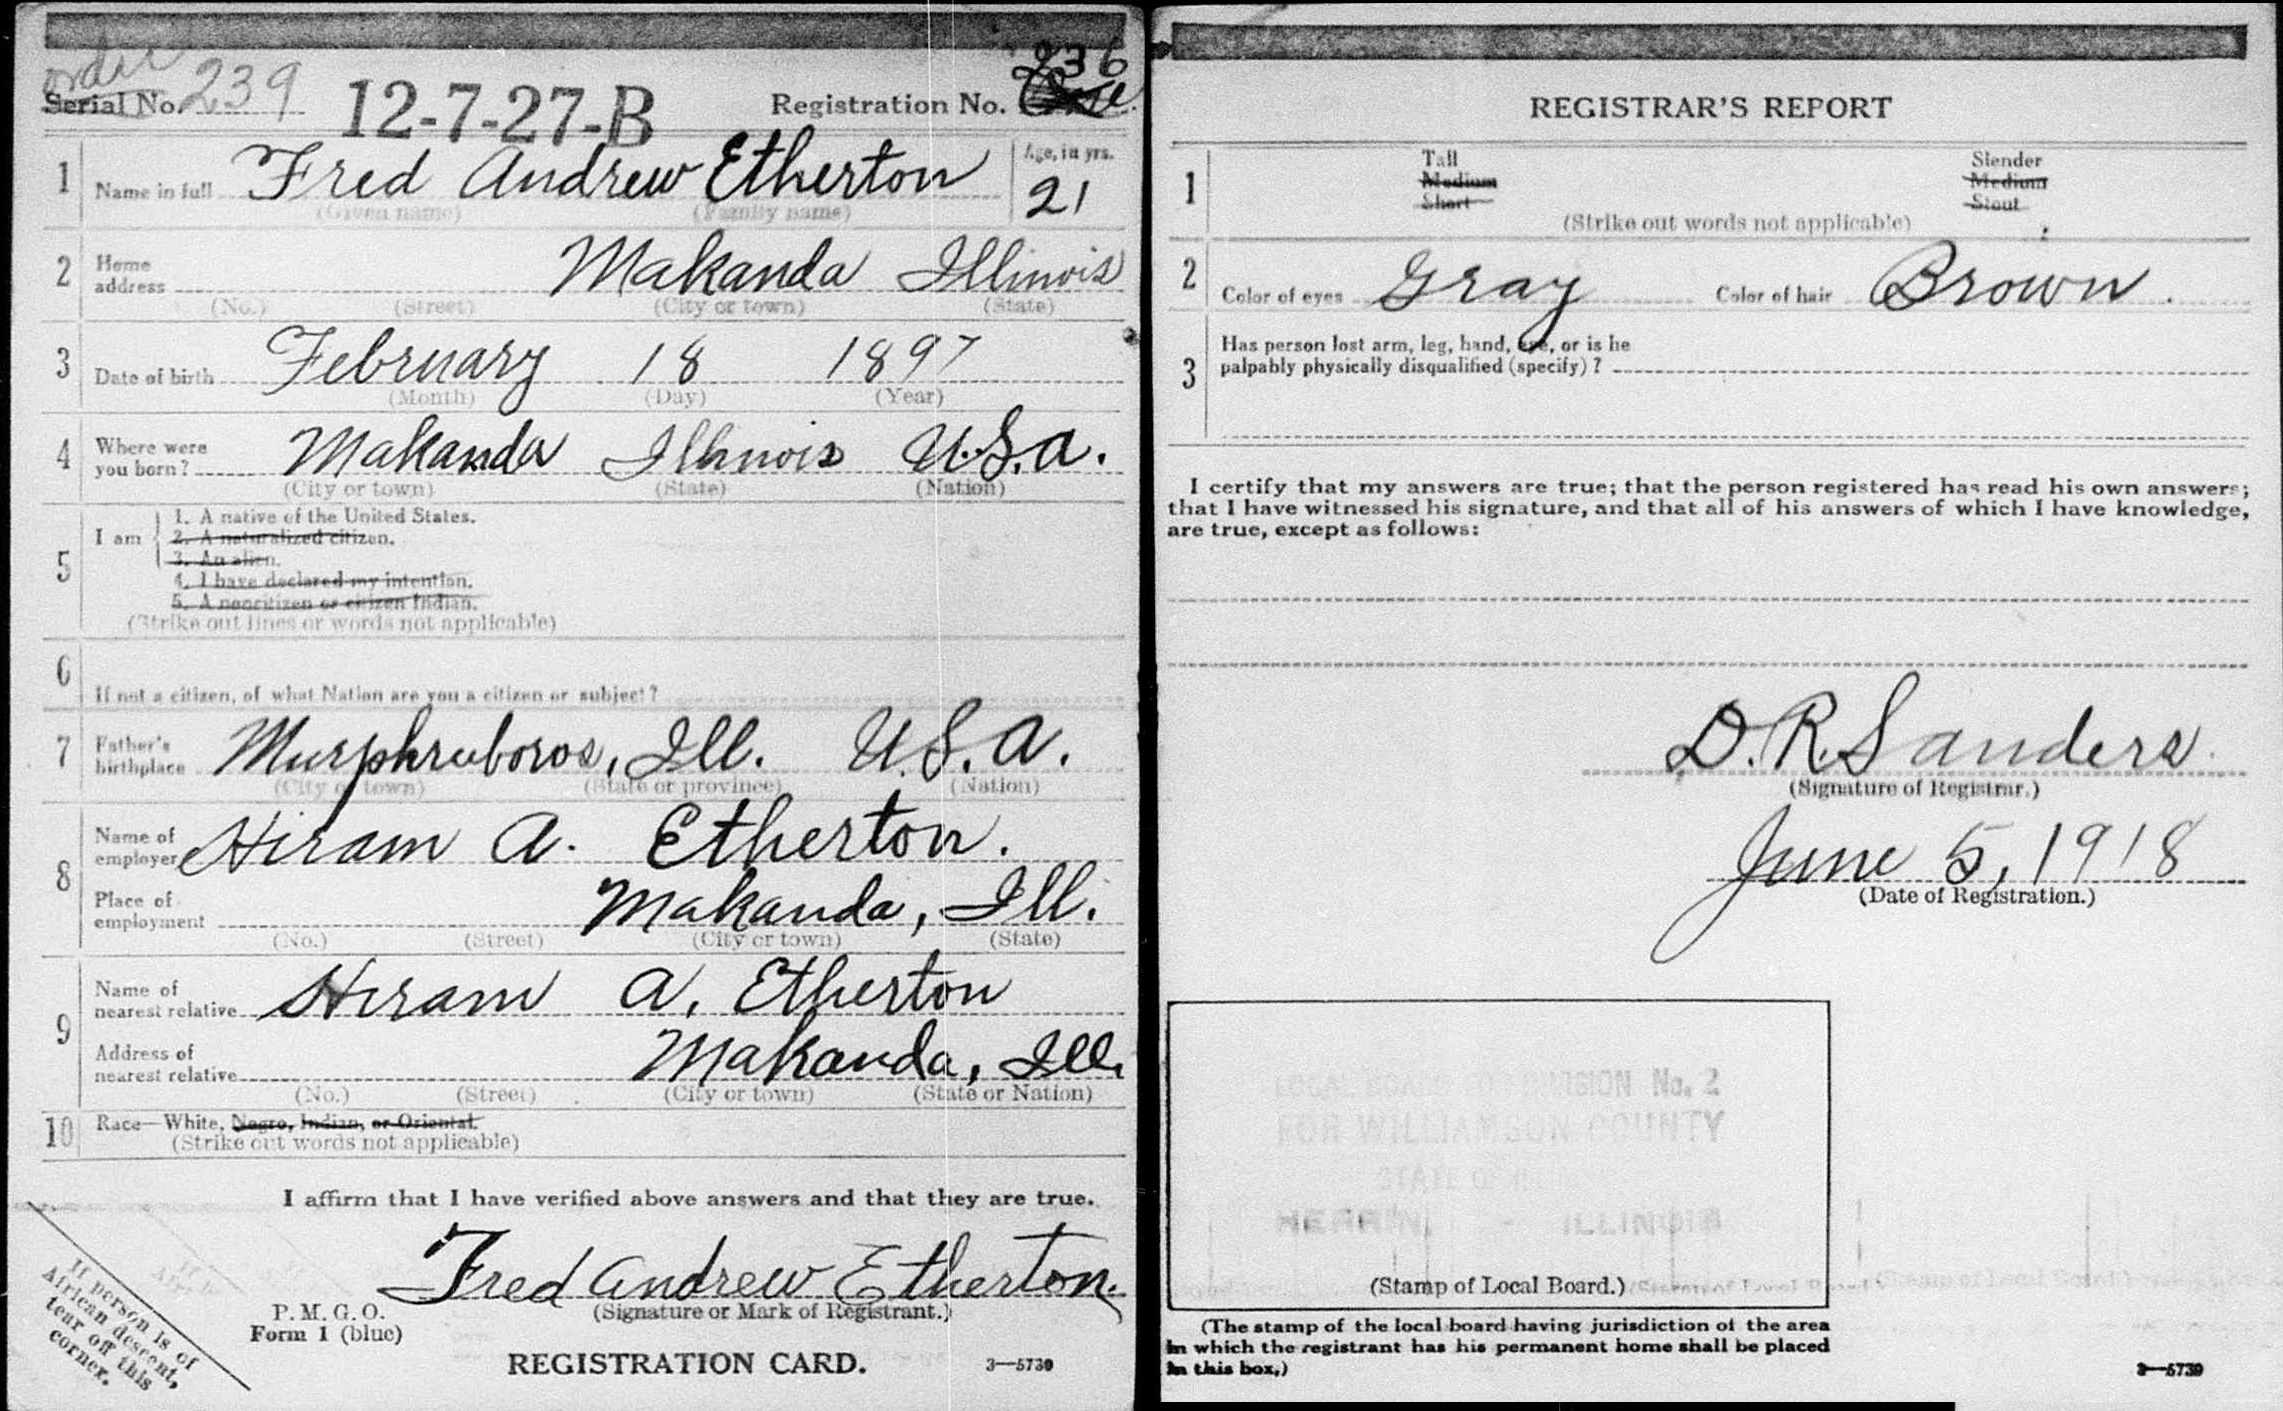 order
Serial No. 239
12-7-27-B
Registration No. 236
1 Name in full Fred Andrew Etherton
(Given name) (Family name)
Age, in yrs.
21
2 Home address Makanda Illinois
(No.) (Street) (City or town) (State)
3 Date of birth February 18 1897
(Month) (Day) (Year)
4 Where were you born? Makanda Illinois U.S.A.
(City or town) (State) (Nation)
5 I am
1. A native of the United States.
2. A naturalized citizen.
3. An alien.
4. I have declared my intention.
5. A noncitizen or citizen Indian.
(Strike out lines or words not applicable)
6 If not a citizen, of what Nation are you a citizen or subject?
7 Father's birthplace Murphreeboros, Ill. U.S.A.
(City or town) (State or province) (Nation)
8 Name of employer Hiram A. Etherton.
Place of employment Makanda, Ill.
(No.) (Street) (City or town) (State)
9 Name of nearest relative Hiram A. Etherton
Address of nearest relative Makanda, Ill.
(No.) (Street) (City or town) (State or Nation)
10 Race—White, Negro, Indian, or Oriental.
(Strike out words not applicable)
I affirm that I have verified above answers and that they are true.
Fred Andrew Etherton.
(Signature or Mark of Registrant.)
P. M. G. O.
Form 1 (blue)
REGISTRATION CARD.
3—5739
If person is of
African descent,
tear off this
corner.
REGISTRAR'S REPORT
1 Tall Slender
Medium Medium
Short Stout
(Strike out words not applicable)
2 Color of eyes Gray Color of hair Brown.
3 Has person lost arm, leg, hand, eye, or is he
palpably physically disqualified (specify)?
I certify that my answers are true; that the person registered has read his own answers;
that I have witnessed his signature, and that all of his answers of which I have knowledge,
are true, except as follows:
D. R. Sanders.
(Signature of Registrar.)
June 5, 1918
(Date of Registration.)
LOCAL BOARD FOR DIVISION No. 2
FOR WILLIAMSON COUNTY
STATE OF
HERRIN, - ILLINOIS
(Stamp of Local Board.)
(The stamp of the local board having jurisdiction of the area
in which the registrant has his permanent home shall be placed
in this box.)
3—5739